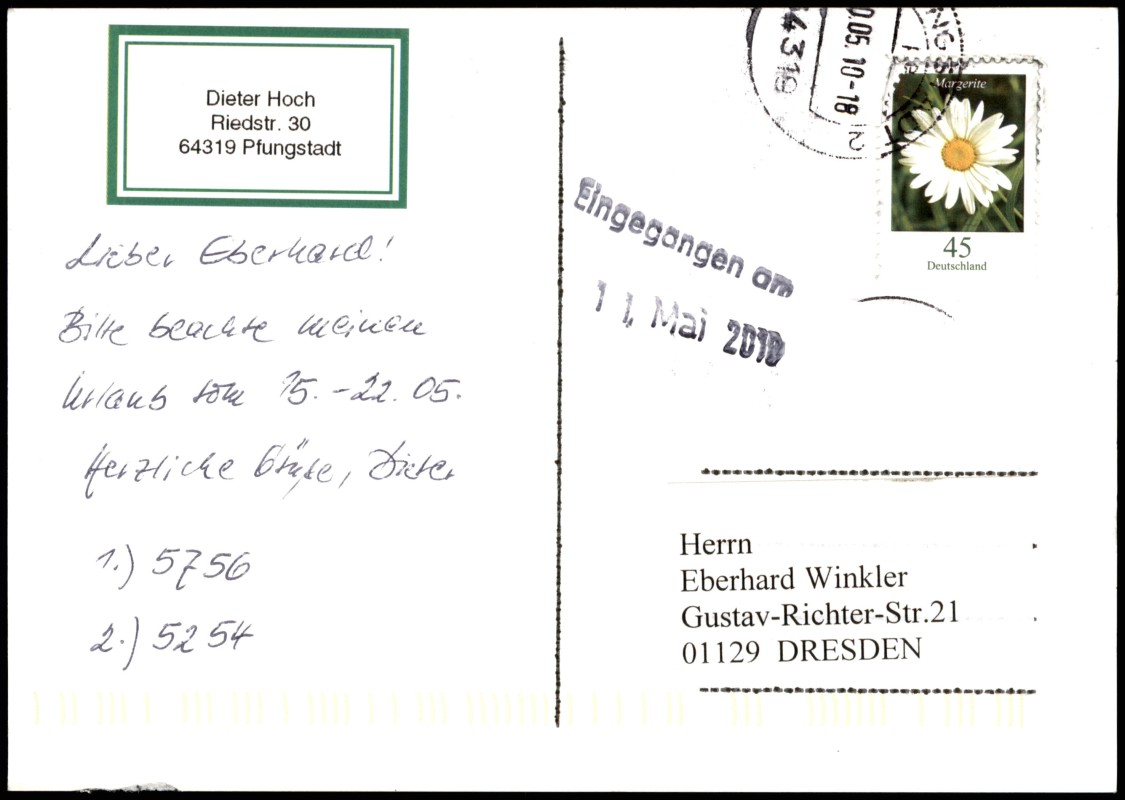 Dieter Hoch
Riedstr. 30
64319 Pfungstadt
Lieber Eberhard!
Bitte beachte meinen
Urlaub vom 15.-22.05.
Herzliche Grüße, Dieter
1.) 5756
2.) 5254
4319
0.05.10-18
12
Margerite
45
Deutschland
Eingegangen am
11. Mai 2010
Herrn
Eberhard Winkler
Gustav-Richter-Str.21
01129 DRESDEN